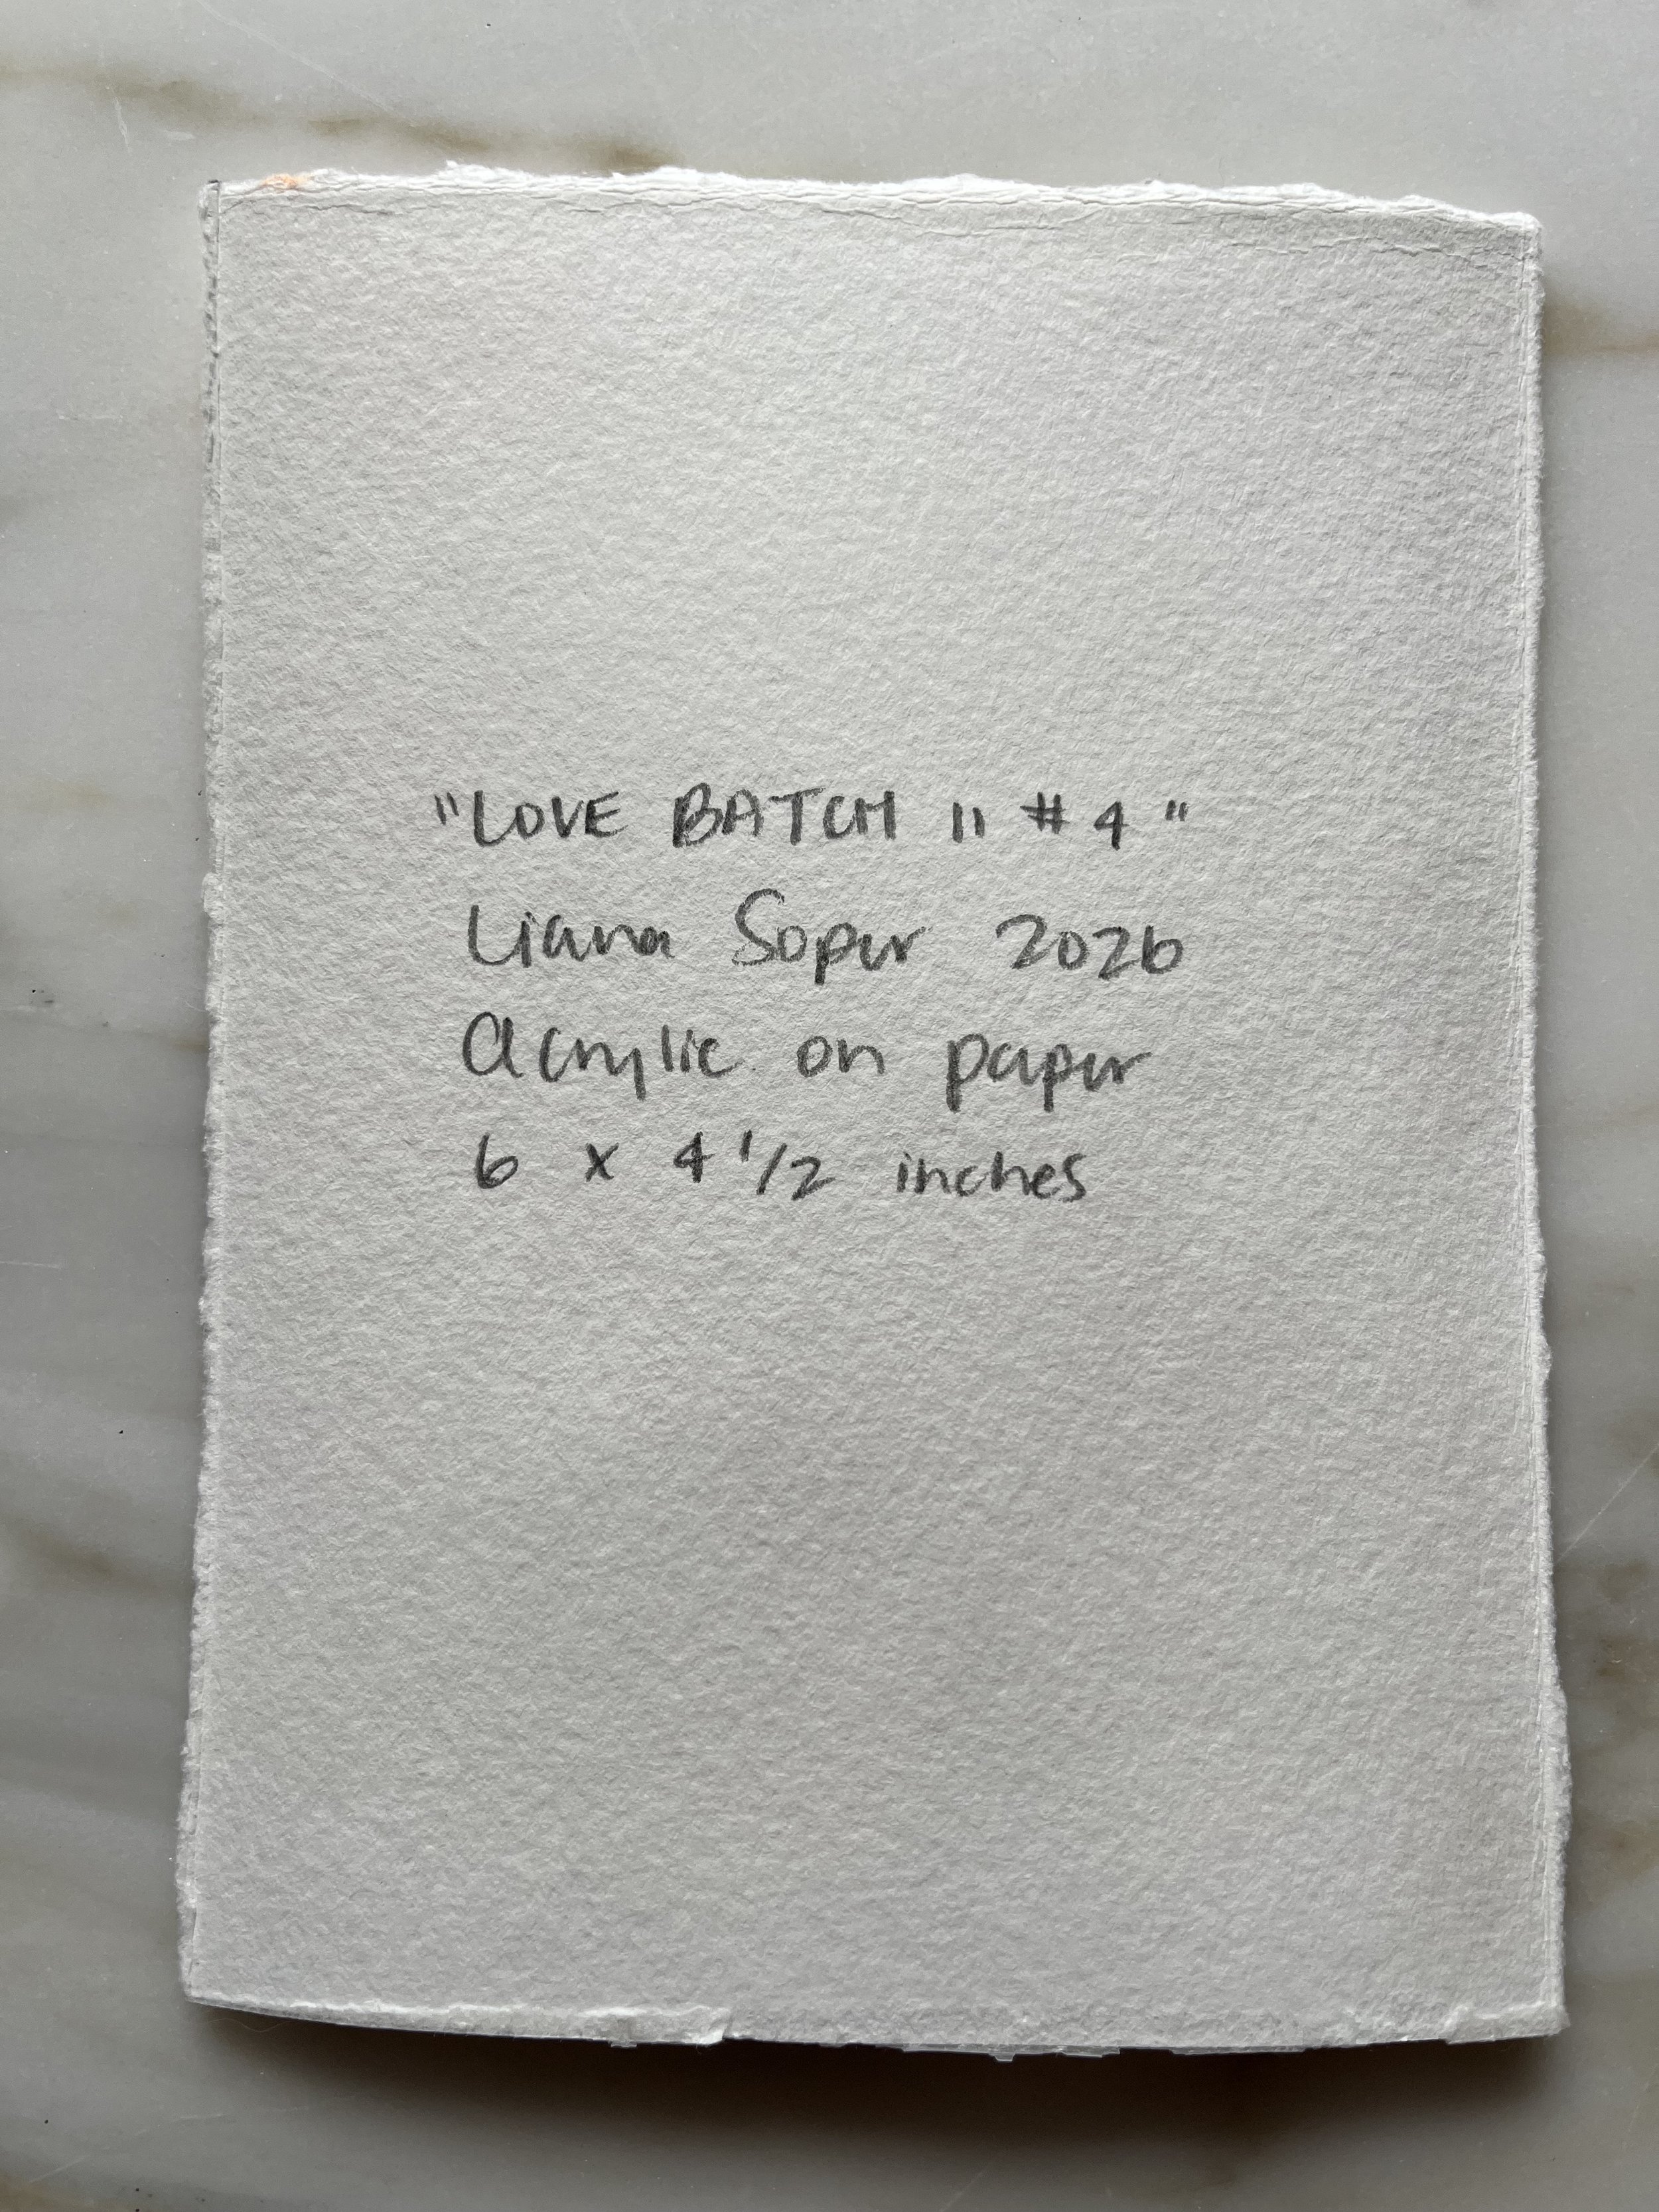 "LOVE BATCH 11 #4"
Liana Soper 2026
Acrylic on paper
6 x 4 1/2 inches